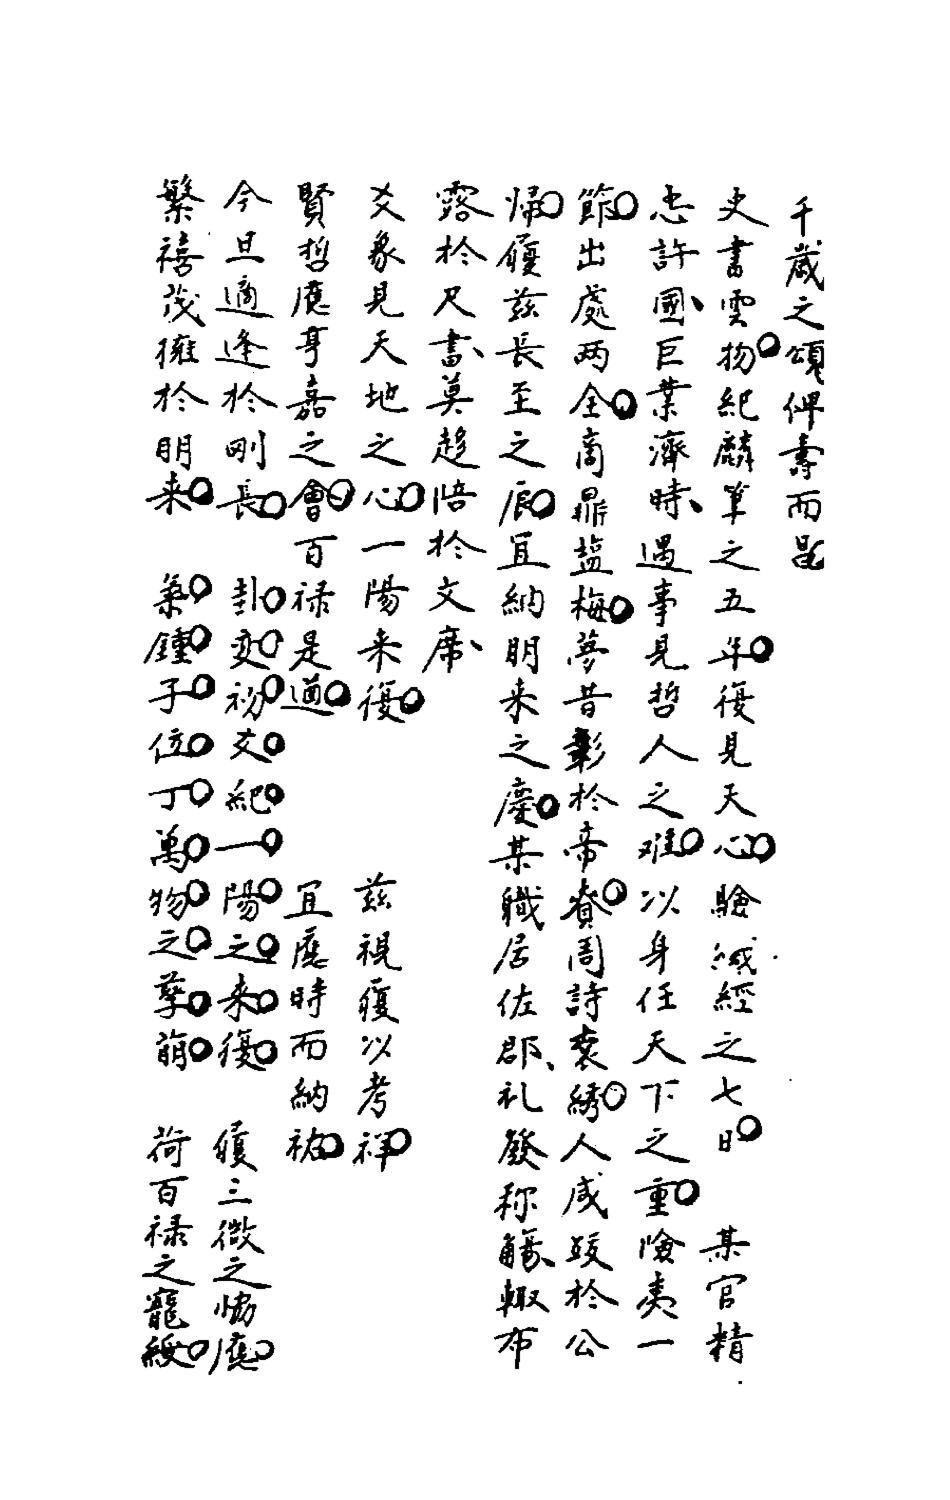 千歲之頌俾壽而昆
史書雲物紀麟筆之五年復見天心驗羲經之七日 某官精
忠許國巨業濟時遇事見哲人之难以身任天下之重險夷一
節出處两全商鼎塩梅夢昔彰於帝賚周詩衮綉人咸跂於公
歸履茲長至之辰宜納明来之慶某職居佐郡礼發称觴輙布
露於尺書莫趍陪於文席
爻象見天地之心一陽来復 茲視履以考祥
賢哲應亨嘉之會百禄是遒 宜應時而納祐
今旦適逢於剛長 卦变初爻紀一陽之来復 膺三微之恊應
繁禧茂擁於明来 氣鍾子位丁萬物之孳萌 荷百禄之寵綏